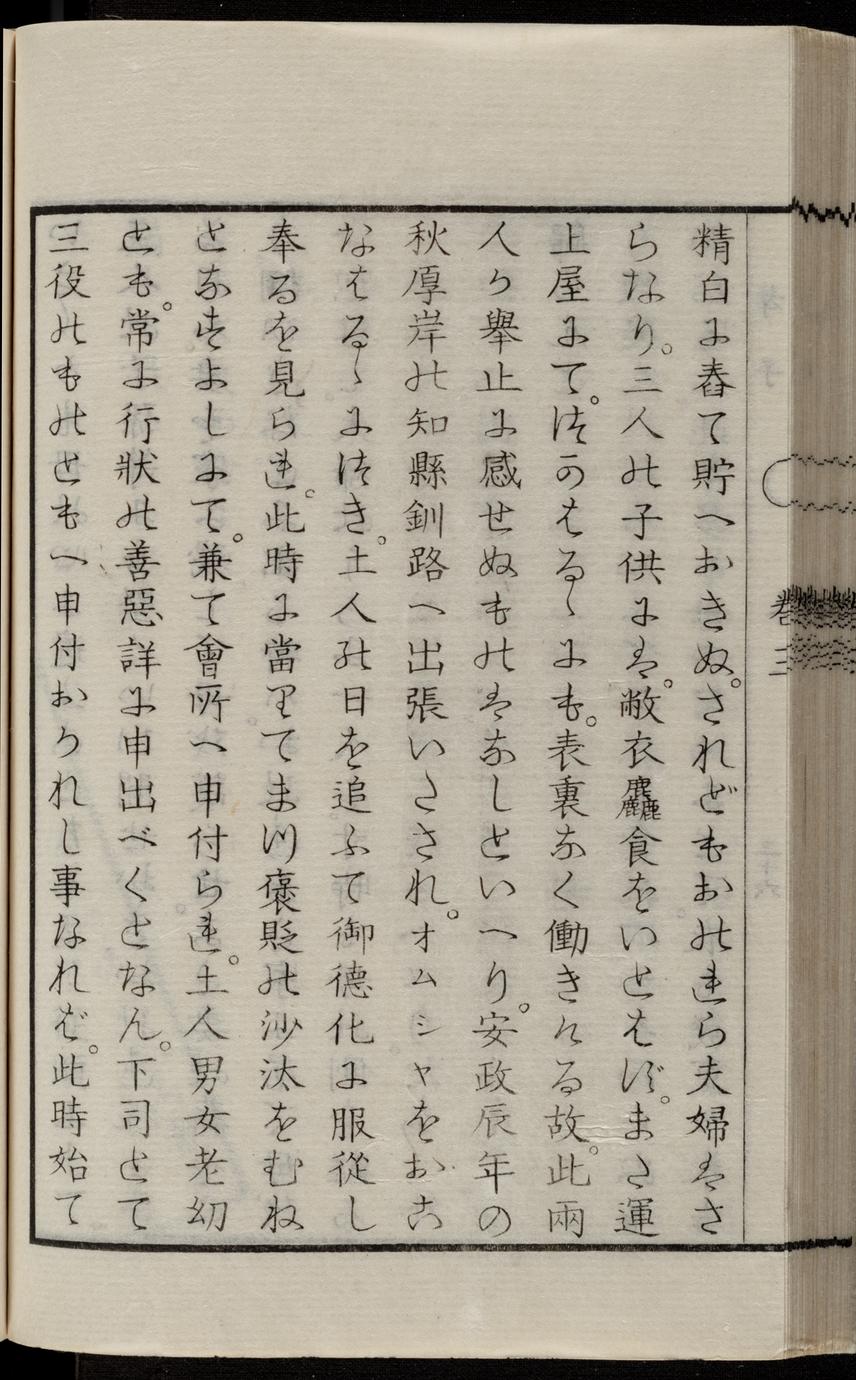 精白に舂て貯へおきぬ。されどもおのれら夫婦はさ
らなり。三人の子供には。敝衣麤食をいとはず。また運
上屋にて。つかはるゝにも。表裏なく働きける故。此兩
人か擧止に感せぬものはなしといへり。安政辰年の
秋厚岸の知縣釧路へ出張いたされ。オムシヤをおこ
なはるゝにつき。土人の日を追ふて御德化に服從し
奉るを見られ。此時に當りてまつ褒貶の沙汰をむね
となすよしにて。兼て會所へ申付られ。土人男女老幼
とも。常に行狀の善惡詳に申出べくとなん。下司とて
三役のものともへ申付おかれし事なれば。此時始て
卷三